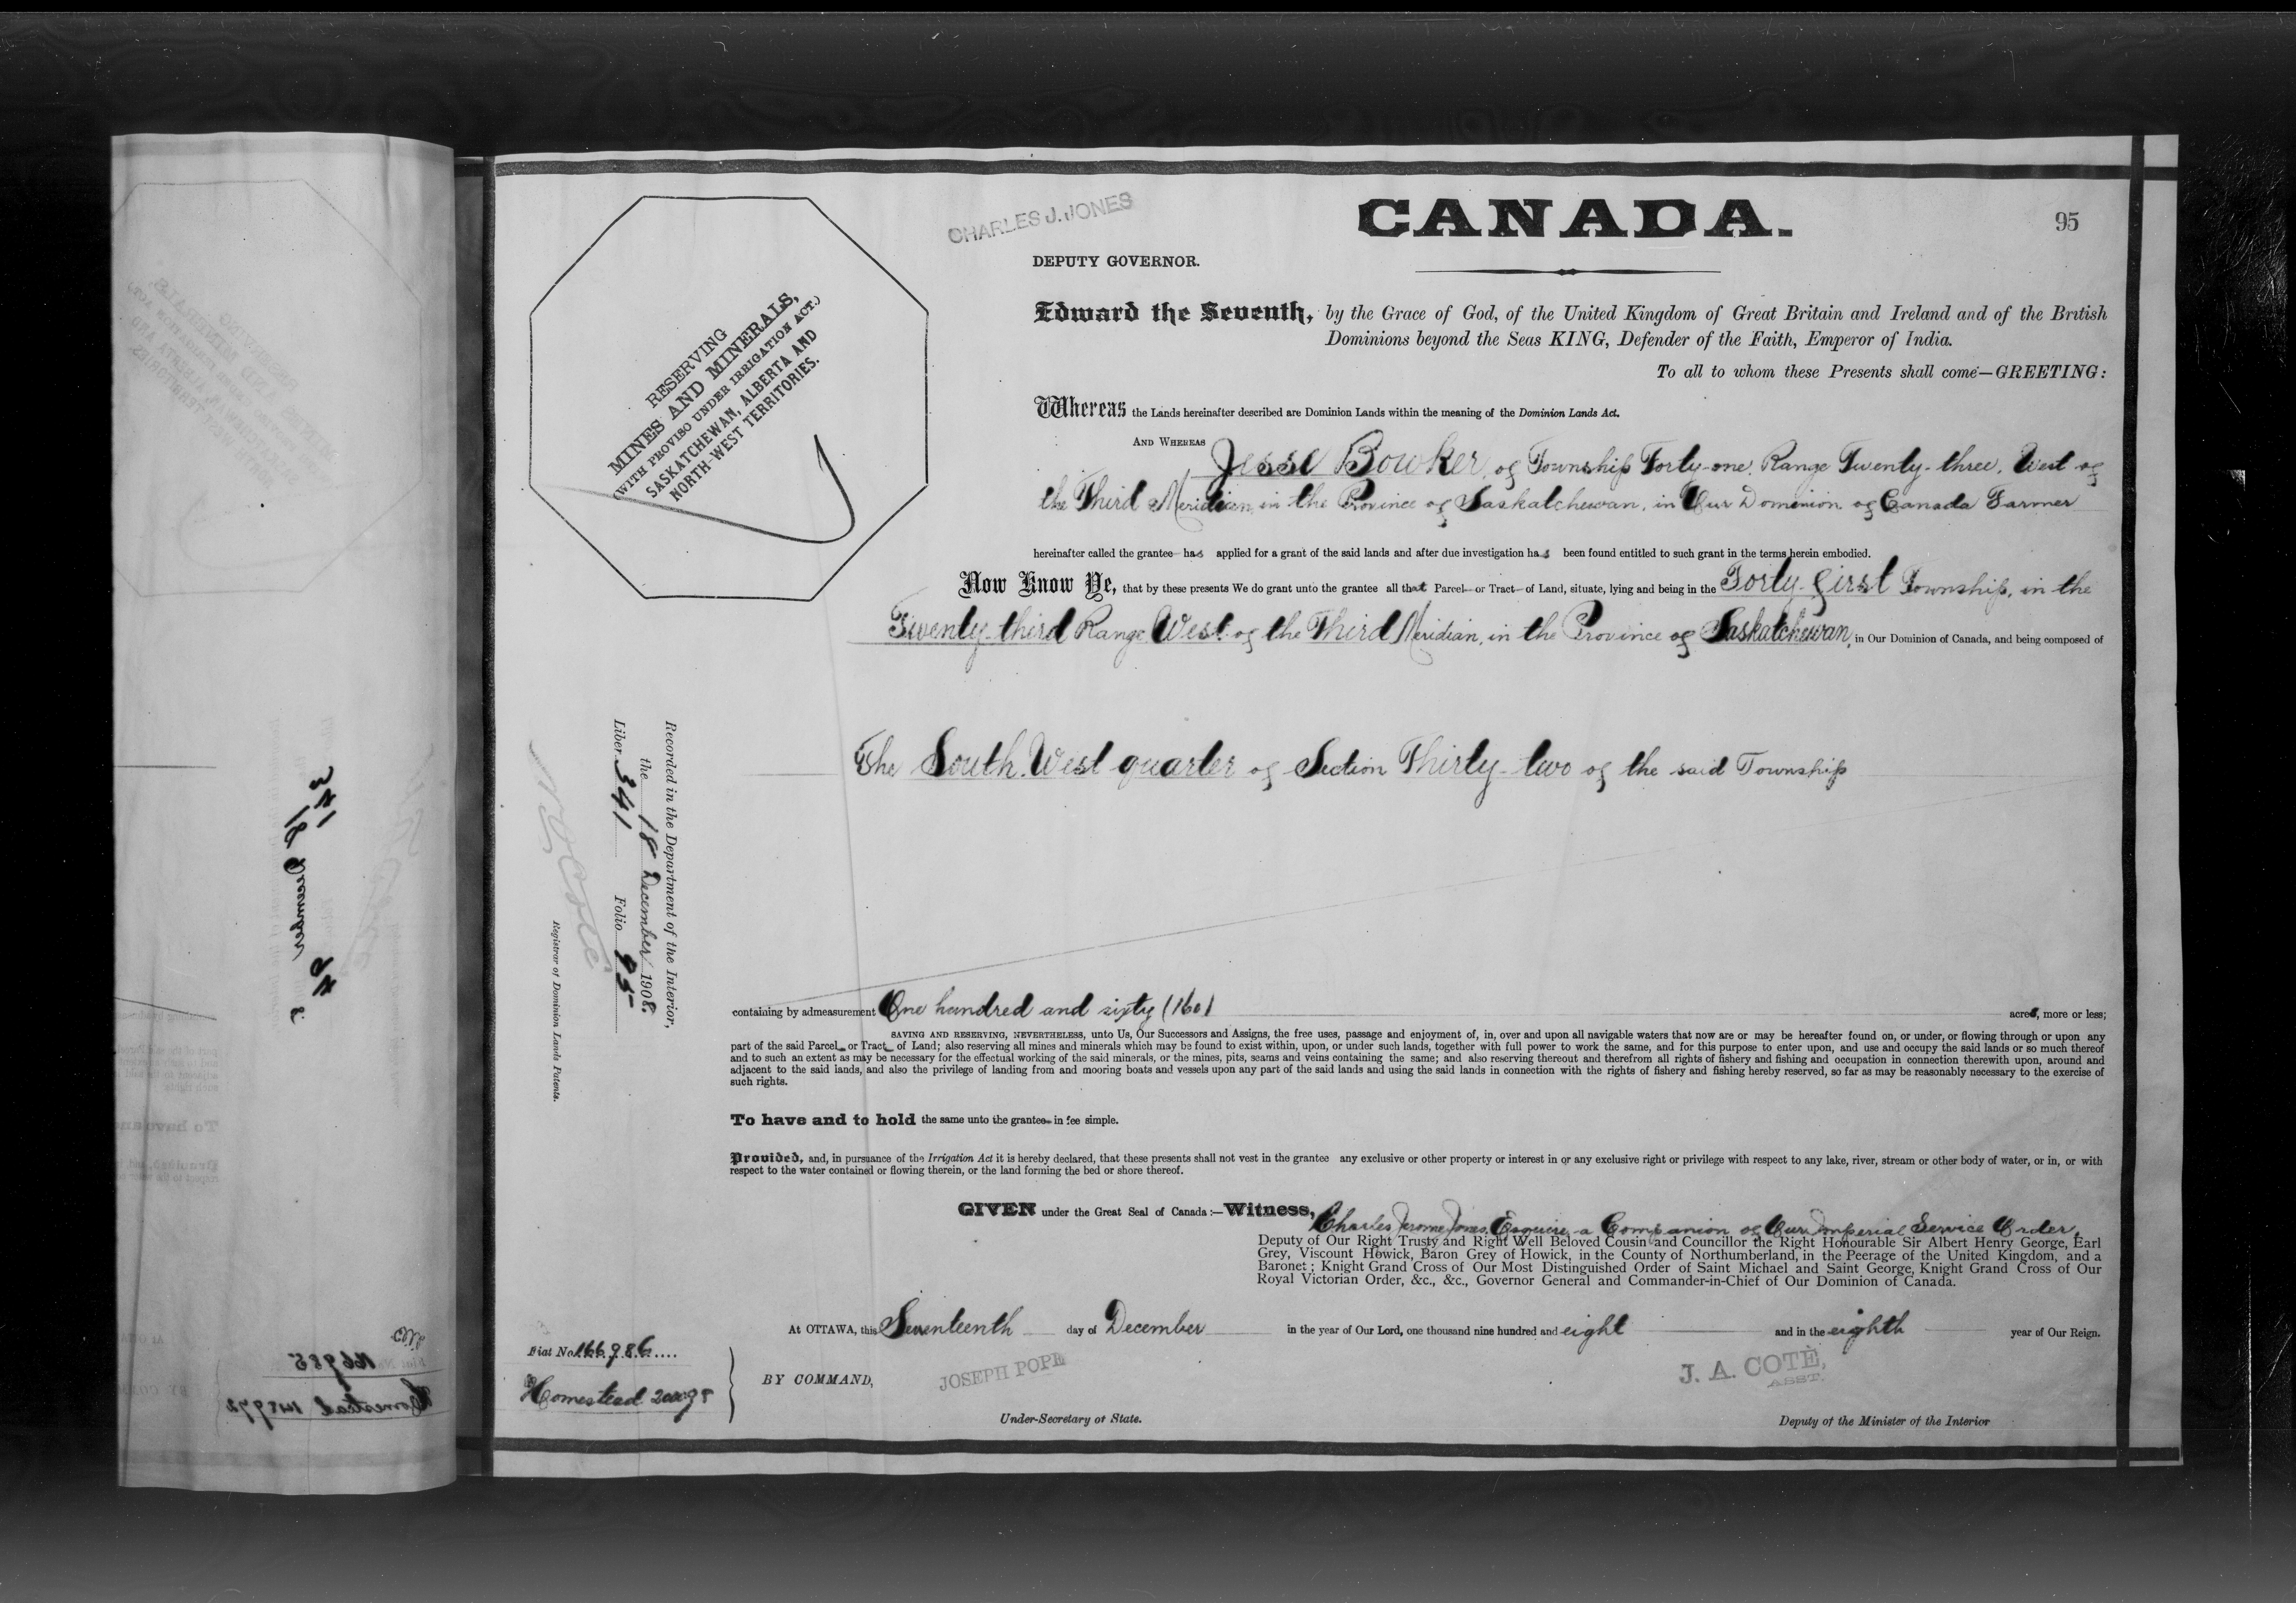 CHARLES J. JONES
CANADA.
95
DEPUTY GOVERNOR.
RESERVING
MINES AND MINERALS,
(WITH PROVISO UNDER IRRIGATION ACT.)
SASKATCHEWAN, ALBERTA AND
NORTH-WEST TERRITORIES.
Edward the Seventh, by the Grace of God, of the United Kingdom of Great Britain and Ireland and of the British
Dominions beyond the Seas KING, Defender of the Faith, Emperor of India.
To all to whom these Presents shall come—GREETING:
Whereas the Lands hereinafter described are Dominion Lands within the meaning of the Dominion Lands Act.
AND WHEREAS Jesse Bowker, of Township Forty-one, Range Twenty-three, West of
the Third Meridian, in the Province of Saskatchewan, in Our Dominion of Canada Farmer
hereinafter called the grantee has applied for a grant of the said lands and after due investigation has been found entitled to such grant in the terms herein embodied.
Now Know Ye, that by these presents We do grant unto the grantee all that Parcel or Tract of Land, situate, lying and being in the Forty-first Township, in the
Twenty-third Range West of the Third Meridian, in the Province of Saskatchewan, in Our Dominion of Canada, and being composed of
The South West quarter of Section Thirty-two of the said Township
Recorded in the Department of the Interior,
the 18 December 1908.
Liber 341 Folio 95
Registrar of Dominion Lands Patents.
containing by admeasurement One hundred and sixty (160) acres, more or less;
SAVING AND RESERVING, NEVERTHELESS, unto Us, Our Successors and Assigns, the free uses, passage and enjoyment of, in, over and upon all navigable waters that now are or may be hereafter found on, or under, or flowing through or upon any
part of the said Parcel or Tract of Land; also reserving all mines and minerals which may be found to exist within, upon, or under such lands, together with full power to work the same, and for this purpose to enter upon, and use and occupy the said lands or so much thereof
and to such an extent as may be necessary for the effectual working of the said minerals, or the mines, pits, seams and veins containing the same; and also reserving thereout and therefrom all rights of fishery and fishing and occupation in connection therewith upon, around and
adjacent to the said lands, and also the privilege of landing from and mooring boats and vessels upon any part of the said lands and using the said lands in connection with the rights of fishery and fishing hereby reserved, so far as may be reasonably necessary to the exercise of
such rights.
To have and to hold the same unto the grantee in fee simple.
Provided, and, in pursuance of the Irrigation Act it is hereby declared, that these presents shall not vest in the grantee any exclusive or other property or interest in or any exclusive right or privilege with respect to any lake, river, stream or other body of water, or in, or with
respect to the water contained or flowing therein, or the land forming the bed or shore thereof.
GIVEN under the Great Seal of Canada:—Witness, Charles Jerome Jones, Esquire, a Companion of Our Imperial Service Order,
Deputy of Our Right Trusty and Right Well Beloved Cousin and Councillor the Right Honourable Sir Albert Henry George, Earl
Grey, Viscount Howick, Baron Grey of Howick, in the County of Northumberland, in the Peerage of the United Kingdom, and a
Baronet; Knight Grand Cross of Our Most Distinguished Order of Saint Michael and Saint George, Knight Grand Cross of Our
Royal Victorian Order, &c., &c., Governor General and Commander-in-Chief of Our Dominion of Canada.
At OTTAWA, this Seventeenth day of December in the year of Our Lord, one thousand nine hundred and eight and in the eighth year of Our Reign.
Fiat No. 166986
Homestead
BY COMMAND,
JOSEPH POPE
J. A. COTÈ,
ASST.
Under-Secretary of State.
Deputy of the Minister of the Interior